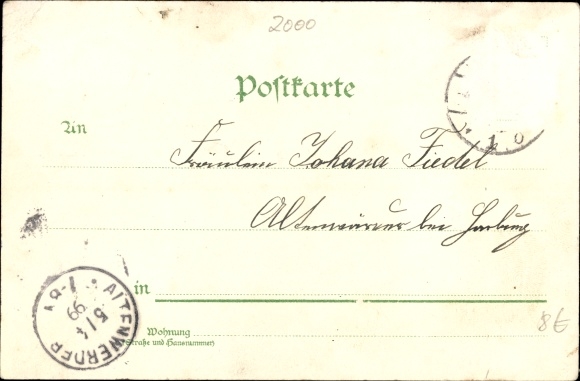 2000
Postkarte
An
Fräulein Johana Fiedel
Altenwärder bei Harburg
in
Wohnung
(Straße und Hausnummer)
ALTENWERDER
5/4
99
7-8 V
8€